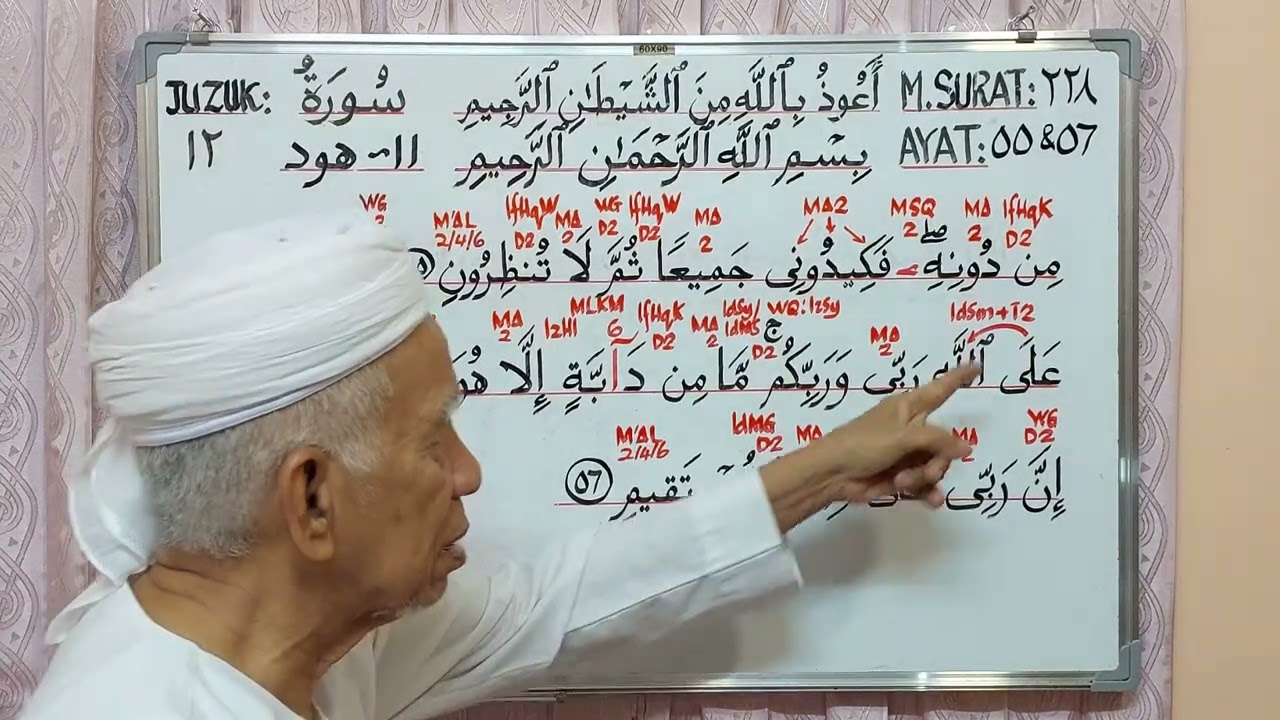 60X90
JUZUK: سُورَةُ أَعُوذُ بِٱللَّهِ مِنَ ٱلشَّيْطَٰنِ ٱلرَّجِيمِ M.SURAT: ٢٢٨
١٢ ١١- هود بِسْمِ ٱللَّهِ ٱلرَّحْمَٰنِ ٱلرَّحِيمِ AYAT: ٥٥ & ٥٧
WG M'AL IfHqW MA WG IfHqW MA MA2 MSQ MA IfHqK
2 2/4/6 D2 2 D2 D2 2 2 2 D2
مِن دُونِهِۦ ۖ فَكِيدُونِى جَمِيعًا ثُمَّ لَا تُنظِرُونِ
MA IzHl MLKM IfHqK MA IdSy/ WQ:IzSy MA IdSm+T2
2 6 D2 2 IdMS D2 2
عَلَى ٱللَّهِ رَبِّى وَرَبِّكُم ۚ مَّا مِن دَآبَّةٍ إِلَّا هُوَ
M'AL IdMG MA MA WG
2/4/6 D2 2 D2
إِنَّ رَبِّى تَقِيمٍ ٥٧